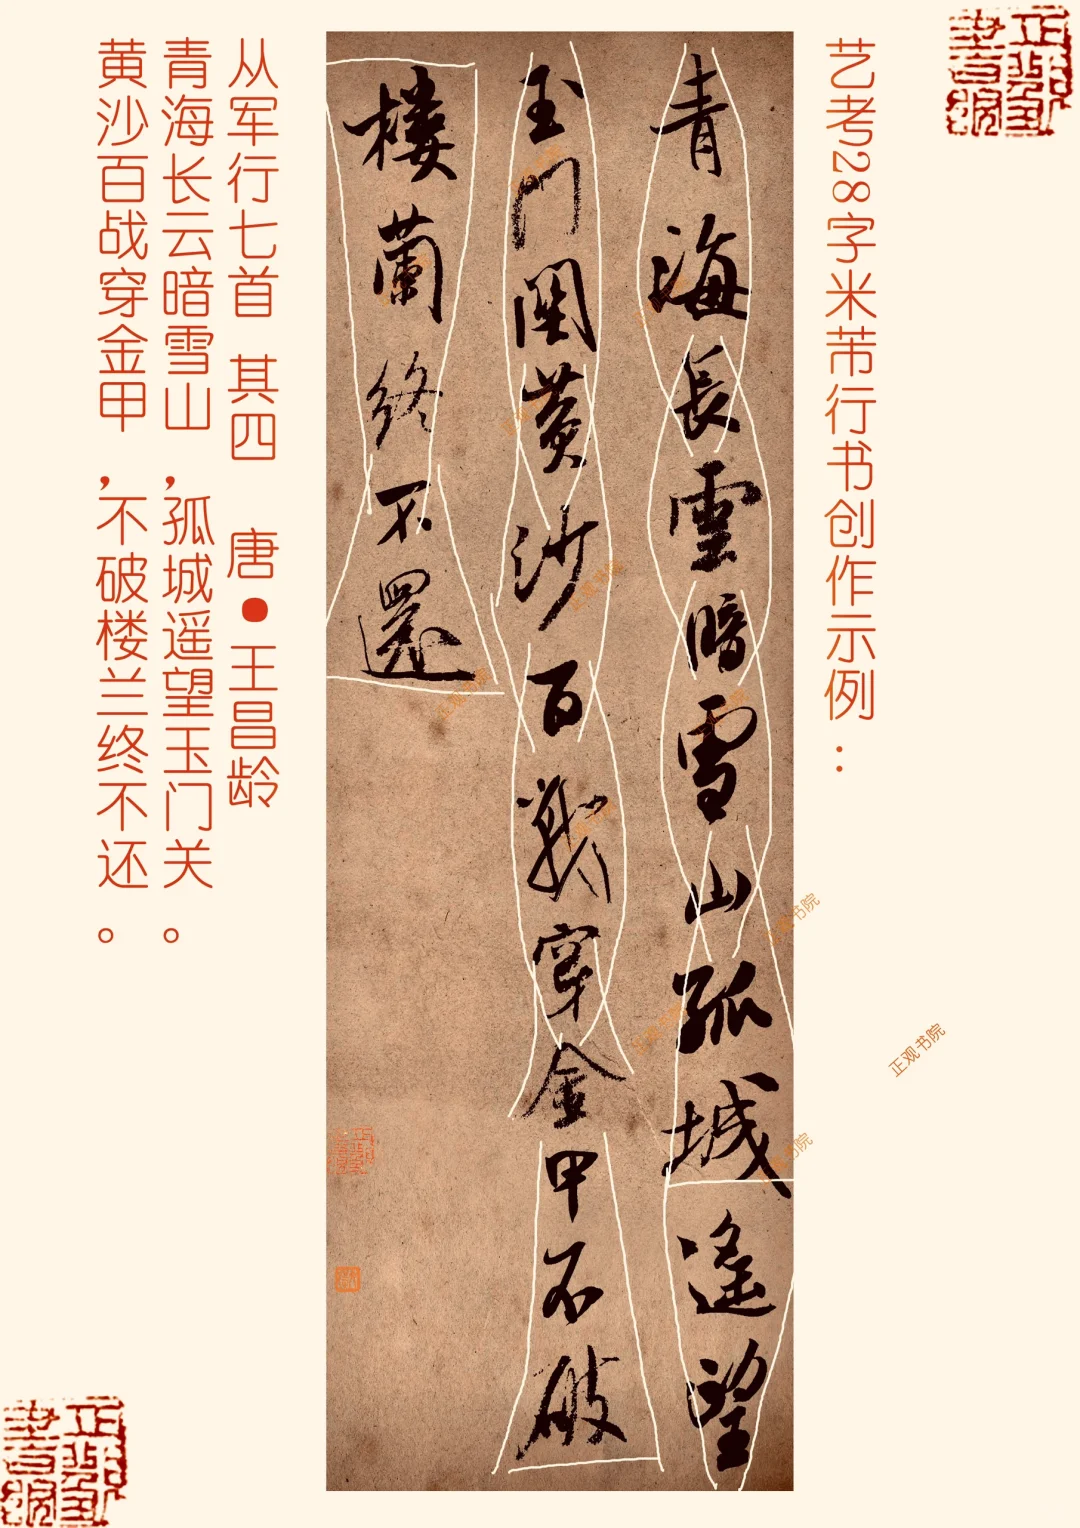 艺考28字米芾行书创作示例：
青海長雲暗雪山孤城遥望
玉門関黄沙百戰穿金甲不破
楼蘭终不還
从军行七首 其四 唐●王昌龄
青海长云暗雪山，孤城遥望玉门关。
黄沙百战穿金甲，不破楼兰终不还。
正观书院
正观书院
正观书院